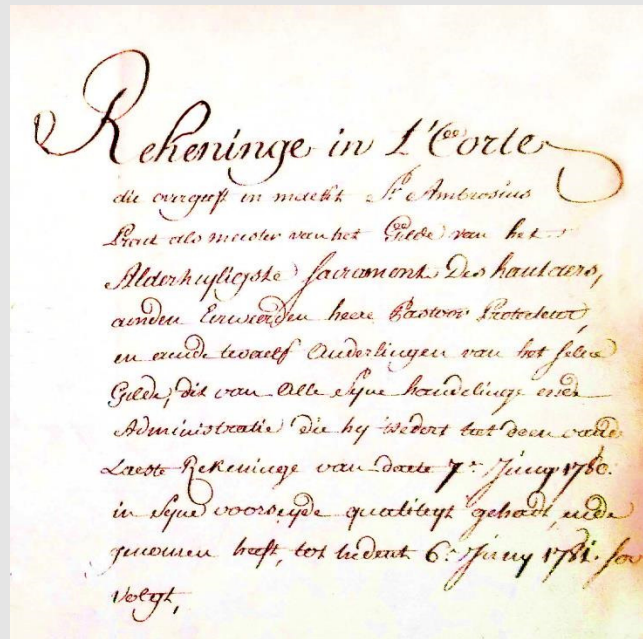 Rekeninge in 't Corte
die overgeeft in maeckt Sr. Ambrosius
als meester van het Gilde van het
Alderhyligste Sacrament Des hautaers,
aenden Eerweerden heere Pastoor Protecteur,
en aende twaelf Ouderlingen van het selve
Gilde, dit van alle syne handelinge ende
Administratie die hy sedert het doen vande
Laeste Rekeninge van daete 7e Juny 1780.
in syne voorseyde qualiteyt gehadt ende
genomen heeft, tot hedent 6e Juny 1781. soo
volgt,